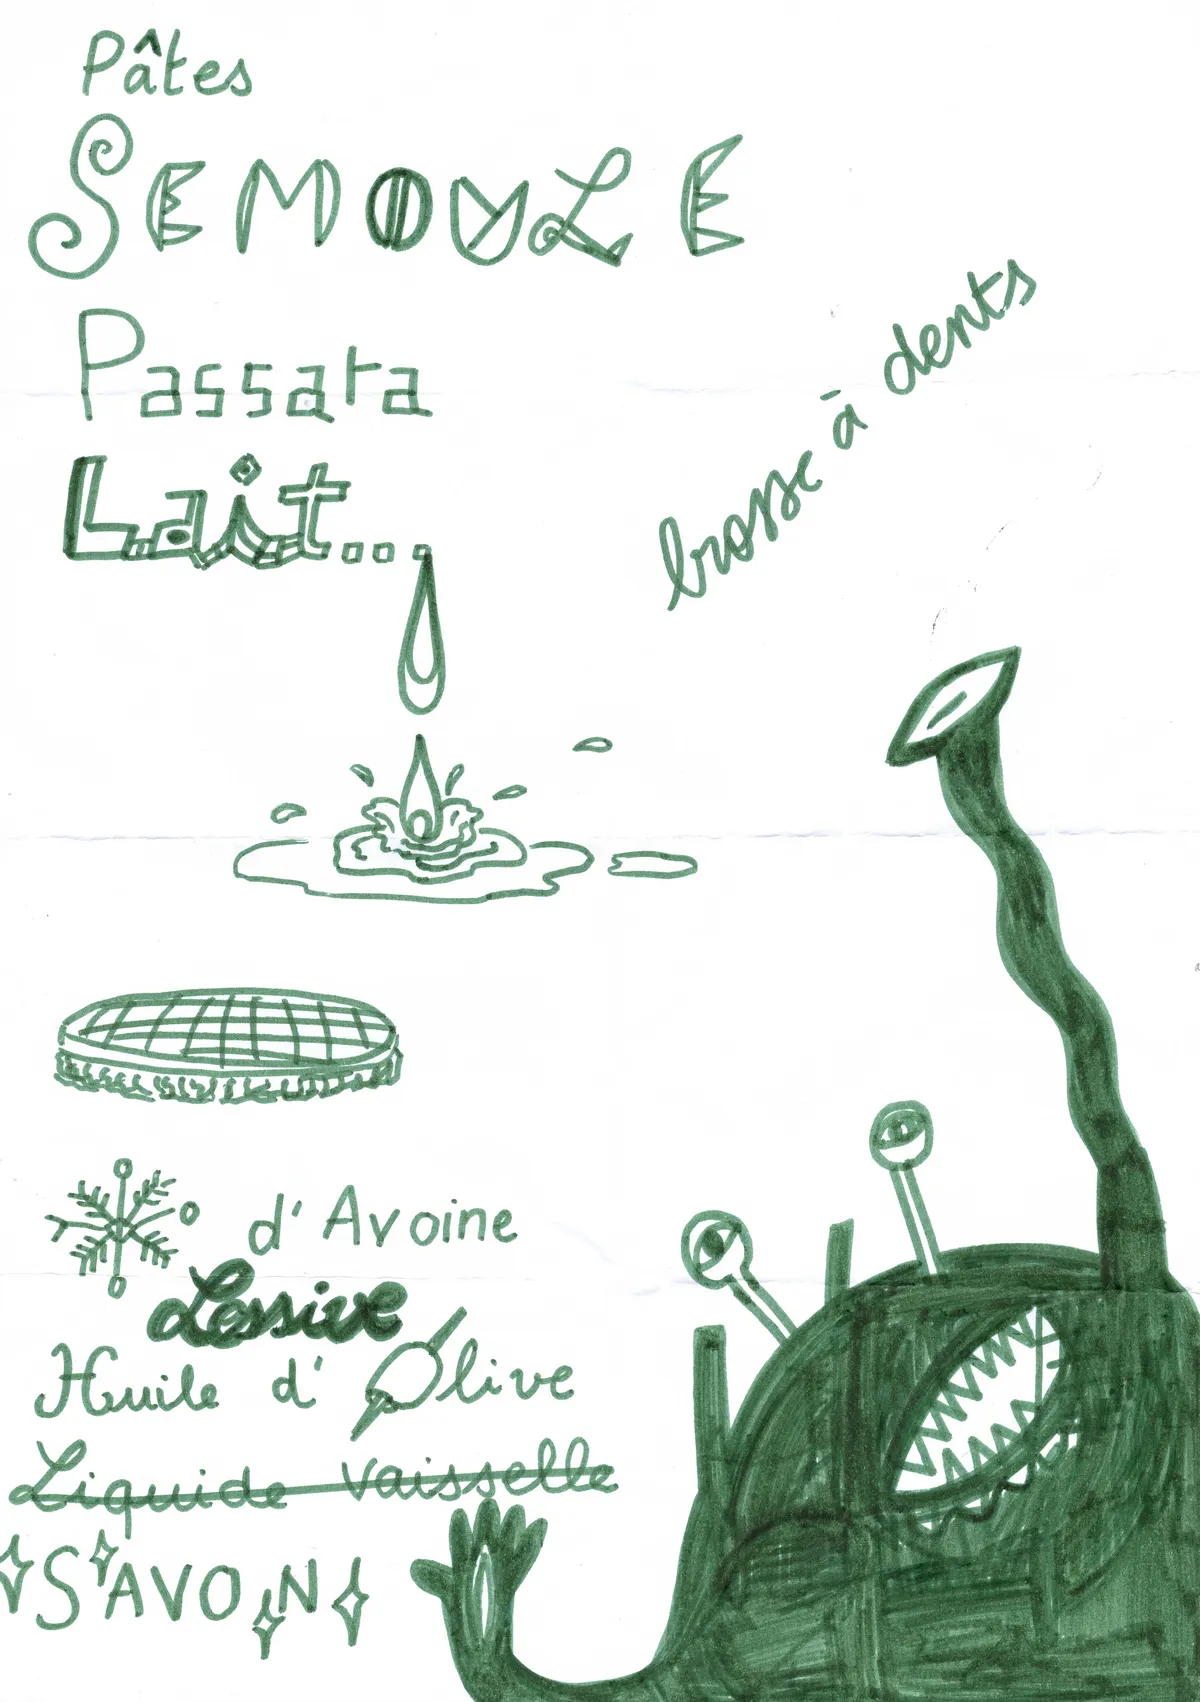 Pâtes
SEMOULE
Passata
Lait...
brosse à dents
d'Avoine
Lessive
Huile d'Olive
Liquide vaisselle
SAVON